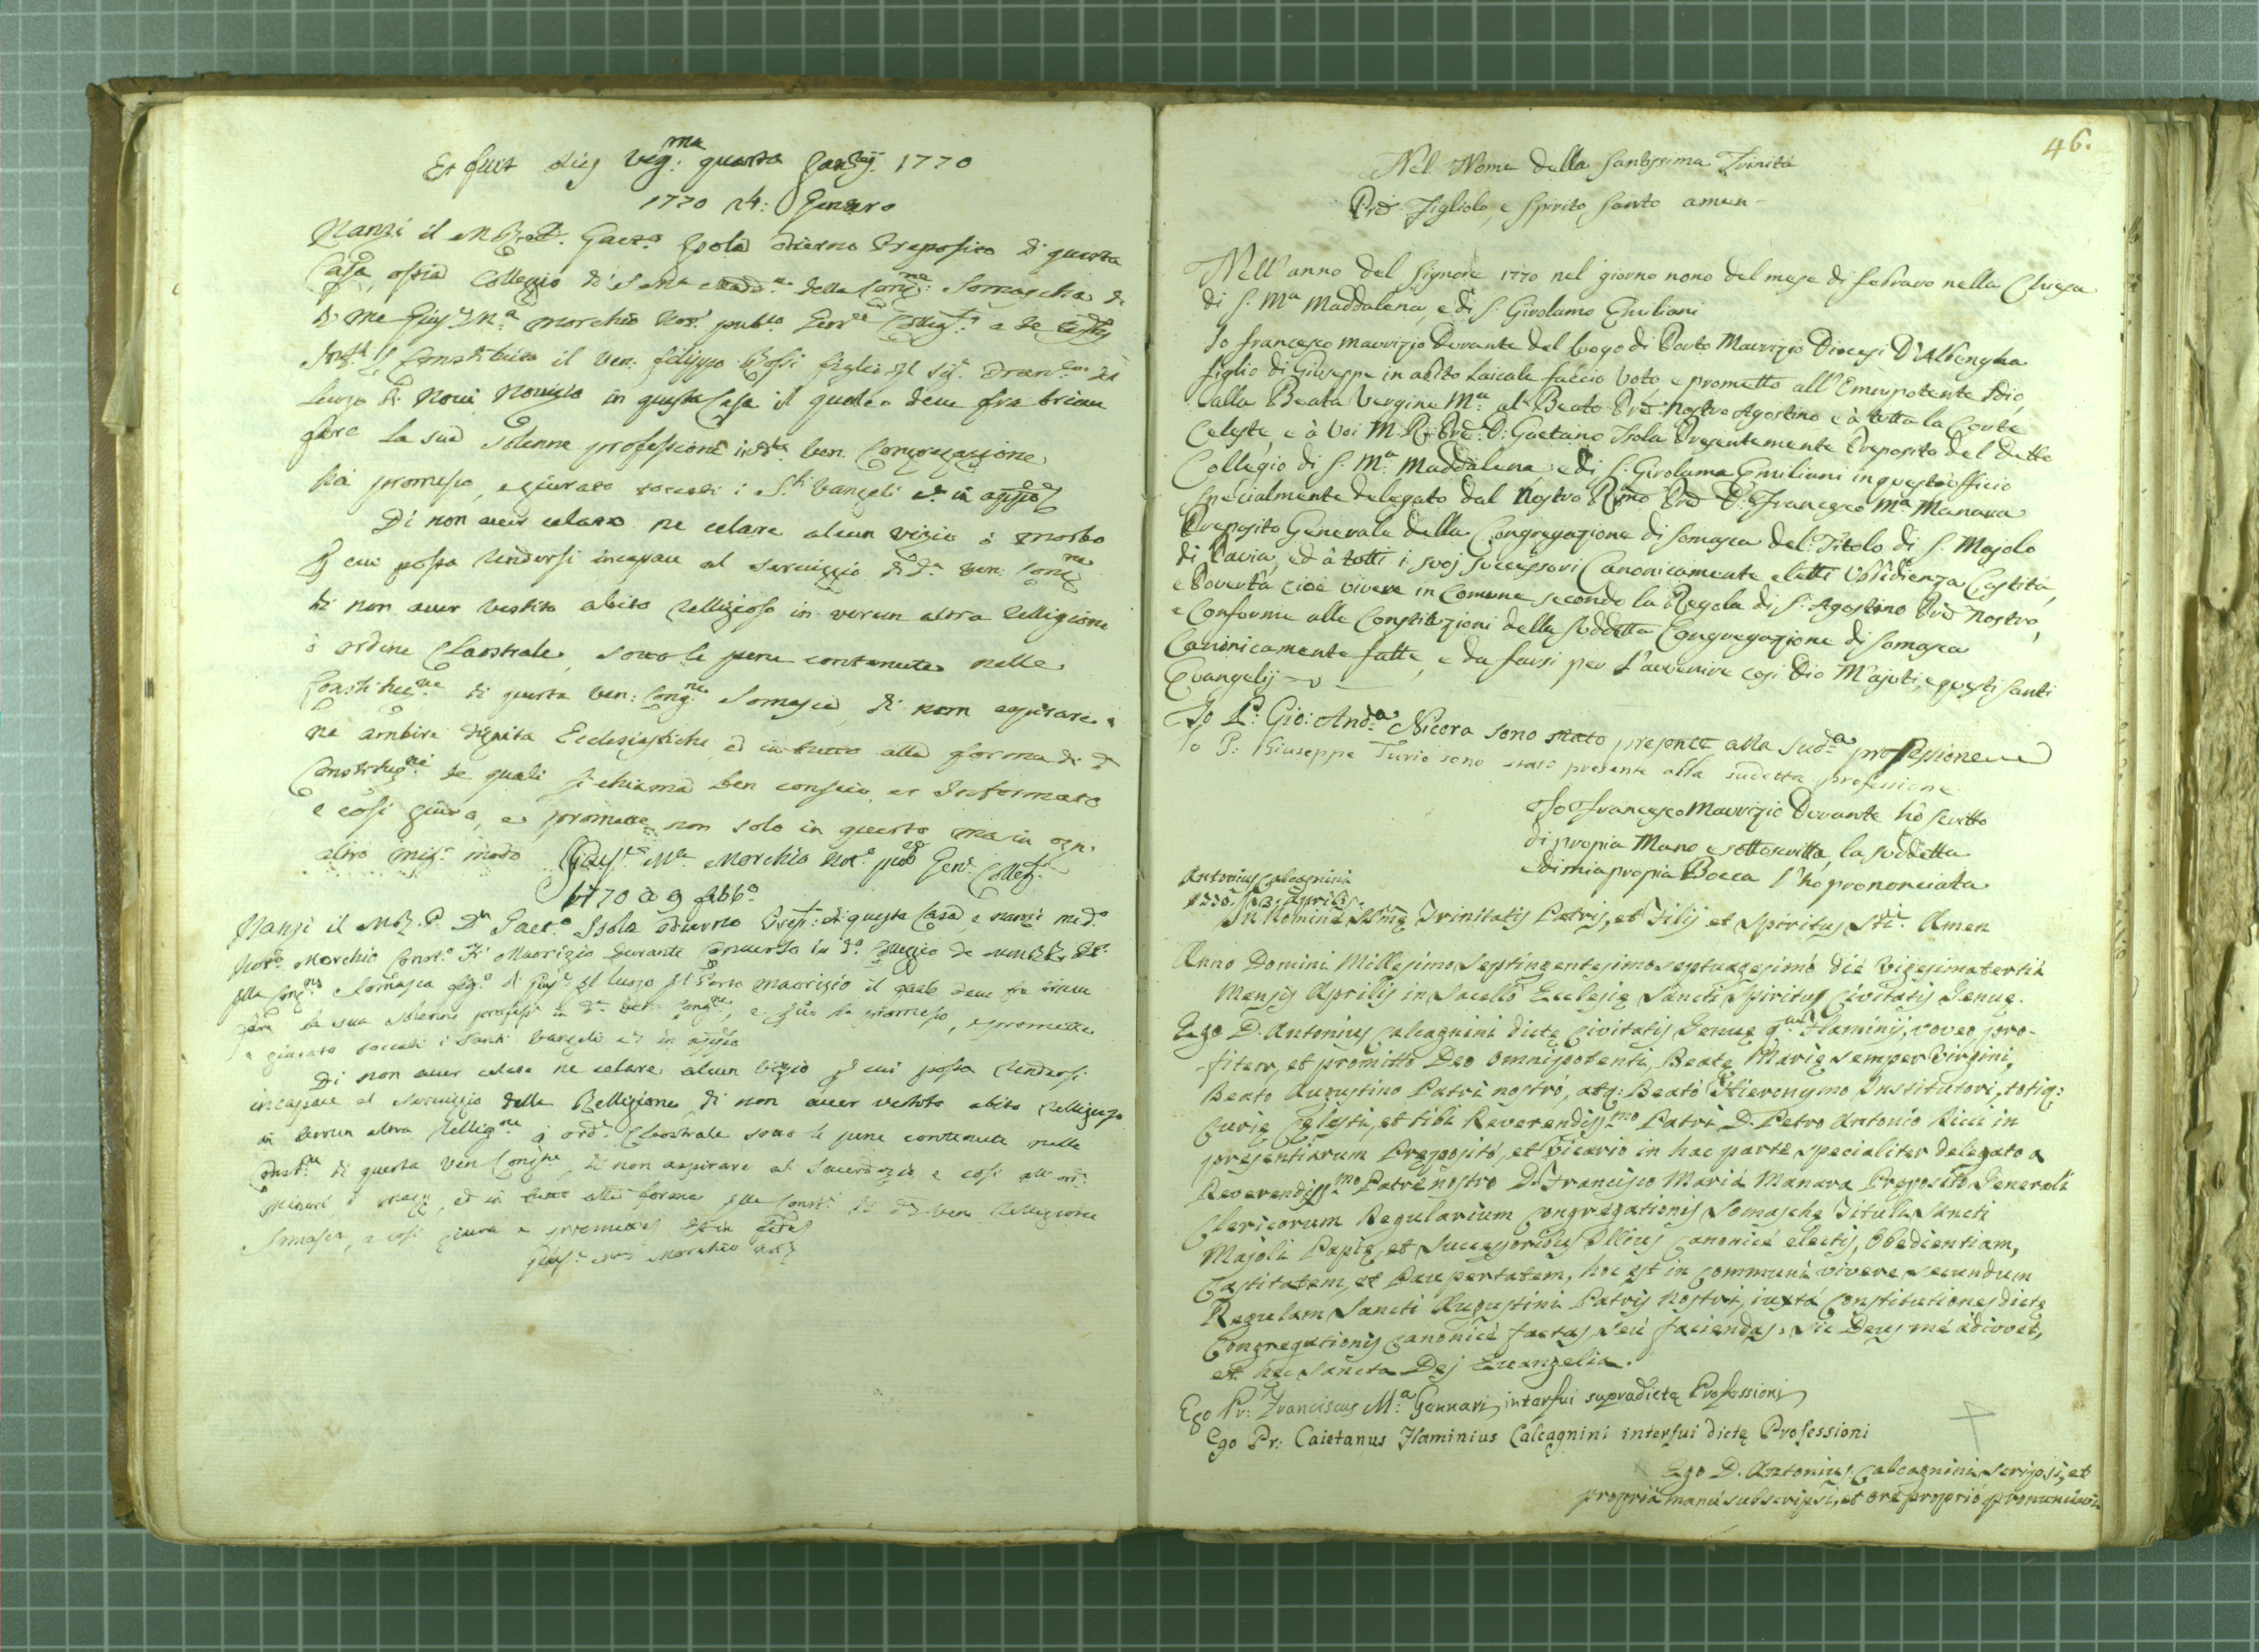 Et fuit dies vig.ma quarta Januarij 1770
1770 24: Genaro
Nanzi il M. R. Gaet.o Isola odierno Preposito di questa
Casa, ossia Collegio di della Cong.ne Somascha
me Morchio Not.o pub.co
il Ven. Filippo Rossi figlio
luogo di Novi Novizio in questa Casa il quale deve fra breve
fare la sua solenne professione in ven. Congregazione
ha promesso, e giurato toccati i S.ti Vangeli et in
Di non aver celato ne celare alcun vizio ò morbo
cui possa rendersi incapace al serviggio di d.a ven: Cong.ne
di non aver vestito abito relligioso in verun altra relligione
ò ordine Claostrale, sotto le pene contenute nelle
di questa Ven: Cong.ne Somasca, di non aspirare
ne ambire dignita Ecclesiastiche ed in tutto alla forma di d.e
le quali si chiama ben conscio et informato
e cosi giura, e promette non solo in questo ma in ogn
altro modo M.a Morchio Not.o
1770 a 9 febb.o
Nanzi il M. R. P. D.n Gaet.o Isola odierno Prep.to di questa Casa, e nanzi me d.o
Not.o Morchio Maorizio Durante Converso in d.o Colleggio
della Cong.ne Somasca luogo di Porto Maorizio il quale deve fra breve
fare la sua solenne profess.e in d.a ven. Cong.ne, e ha promesso, e promette
giurato toccati i Santi Vangeli et in
Di non aver celato ne celare alcun vizio cui possa rendersi
incapace al serviggio della Relligione, di non aver vestito abito relligioso
in verun altra Religg.ne ò ord.e Claostrale sotto le pene contenute nelle
di questa Ven Cong.ne, di non aspirare al Sacerdozio e cosi all'ord.i
Minori ed in tutto alla forma della Const.i di d.a ven Relligione
Somasca, e cosi giura e promette
M.a Morchio Not.
46.
Nel Nome della Santissima Trinità
Prê Figliolo, e Spirito Santo amen
Nell'anno del Signore 1770 nel giorno nono del mese di febraro nella Chiesa
di S. M.a Maddalena, e di S. Girolamo Emiliani
Io Francesco Maurizio Durante del luogo di Porto Maurizio Diocesi D'Albengha
figlio di Giuseppe in abito Laicale faccio voto, e prometto all'Omnipotente Idio,
alla Beata Vergine M.a al Beato Prê Nostro Agostino e à tutta la Corte
Celeste, e à Voi M. R. Prê D. Gaetano Isola Presentemente Preposito del detto
Collegio di S. M.a Maddalena, e di S. Girolamo Emiliani in questo officio
specialmente delegato dal Nostro Rmo Prê D. Francesco M.a Manara
Preposito Generale della Congregazione di Somasca del Titolo di S. Majolo
di Pavia, ed à tutti i suoj successori Canonicamente eletti Ubbidienza Castità,
e Povertà cioè vivere in Comune secondo la Regola di S. Agostino Prê Nostro,
e Conforme alle Constituzioni della suddetta Congregazione di Somasca
Canonicamente fatte, e da farsi per l'avvenire cosi Dio M'ajuti, e questi santi
Evangelij
Io P. Gio: And.a Nicora sono stato presente alla sud.a professione
Io P: Giuseppe Turio sono stato presente alla sudetta professione
Io Francesco Maurizio Durante hô scritto
di propia Mano e sottoscritta la suddetta
e di mia propia Bocca l'hô prononciata
Antonius Calcagnini
1770 23. Aprilis.
In Nomine SSmę Trinitatis Patris, et Filij et Spiritus Sti. Amen
Anno Domini Millesimo Septingentesimo septuagesimo die vigesimatertia
Mensis Aprilis in Sacello Ecclesię Sancti Spiritus Civitatis Genuę.
Ego D. Antonius Calcagnini dictę Civitatis Genuę q.m Flaminij, voveo, pro-
fiteor, et promitto Deo omnipotenti, Beatę Marię semper Virgini,
Beato Augustino Patri nostro, atq: Beato Hieronymo Institutori, totiq:
Curię Cęlesti, et tibi Reverendiss.mo Patri D. Petro Antonio Ricci in
presentiarum Pręposito, et Vicario in hac parte specialiter delegato a
Reverendiss.mo Patre nostro D. Francisco Maria Manara Pręposito Generali
Clericorum Regularium Congregationis Somaschę Tituli Sancti
Majoli Papię, et successoribus Illius canonicé electis, Obedientiam,
Castitatem, et Paupertatem, hoc est in communi vivere secundum
Regulam Sancti Augustini Patris Nostri, iuxtá Constitutiones dictę
Congregationis canonicé factas seú faciendas. Sic Deus mé ádiuvet,
et hęc Sancta Dej Evangelia.
Ego Pr: Franciscus M.a Gennari interfui supradictę Professioni
Ego Pr: Caietanus Flaminius Calcagnini interfui dictę Professioni
Ego D. Antonius Calcagnini scripsi, et
propriá manú subscripsi, et oré proprió pronunciavi